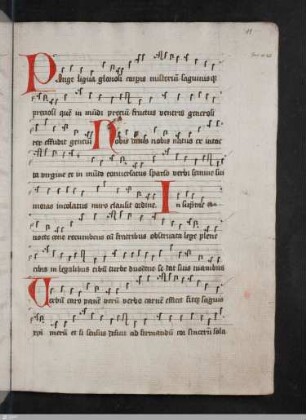 Pange ligua gloriosi corpis misteriu saguinisqz
preciosi que in mudi preciu fructus ventris generosi
rex effudit gentiu Nobis datus nobis natus ex intac
ta virgine et in mudo conversatus sparso verbi semine sui
moras incolatus miro clausit ordine In supreme
nocte cene recumbens cu fratribus observata lege plene
cibis in legalibus cibu turbe duodene se dat suis manibus
Verbu caro pane veru verbo carne efficit fitqz saguis
xpi meru et si sensus deficit ad firmandu cor sinceru sola